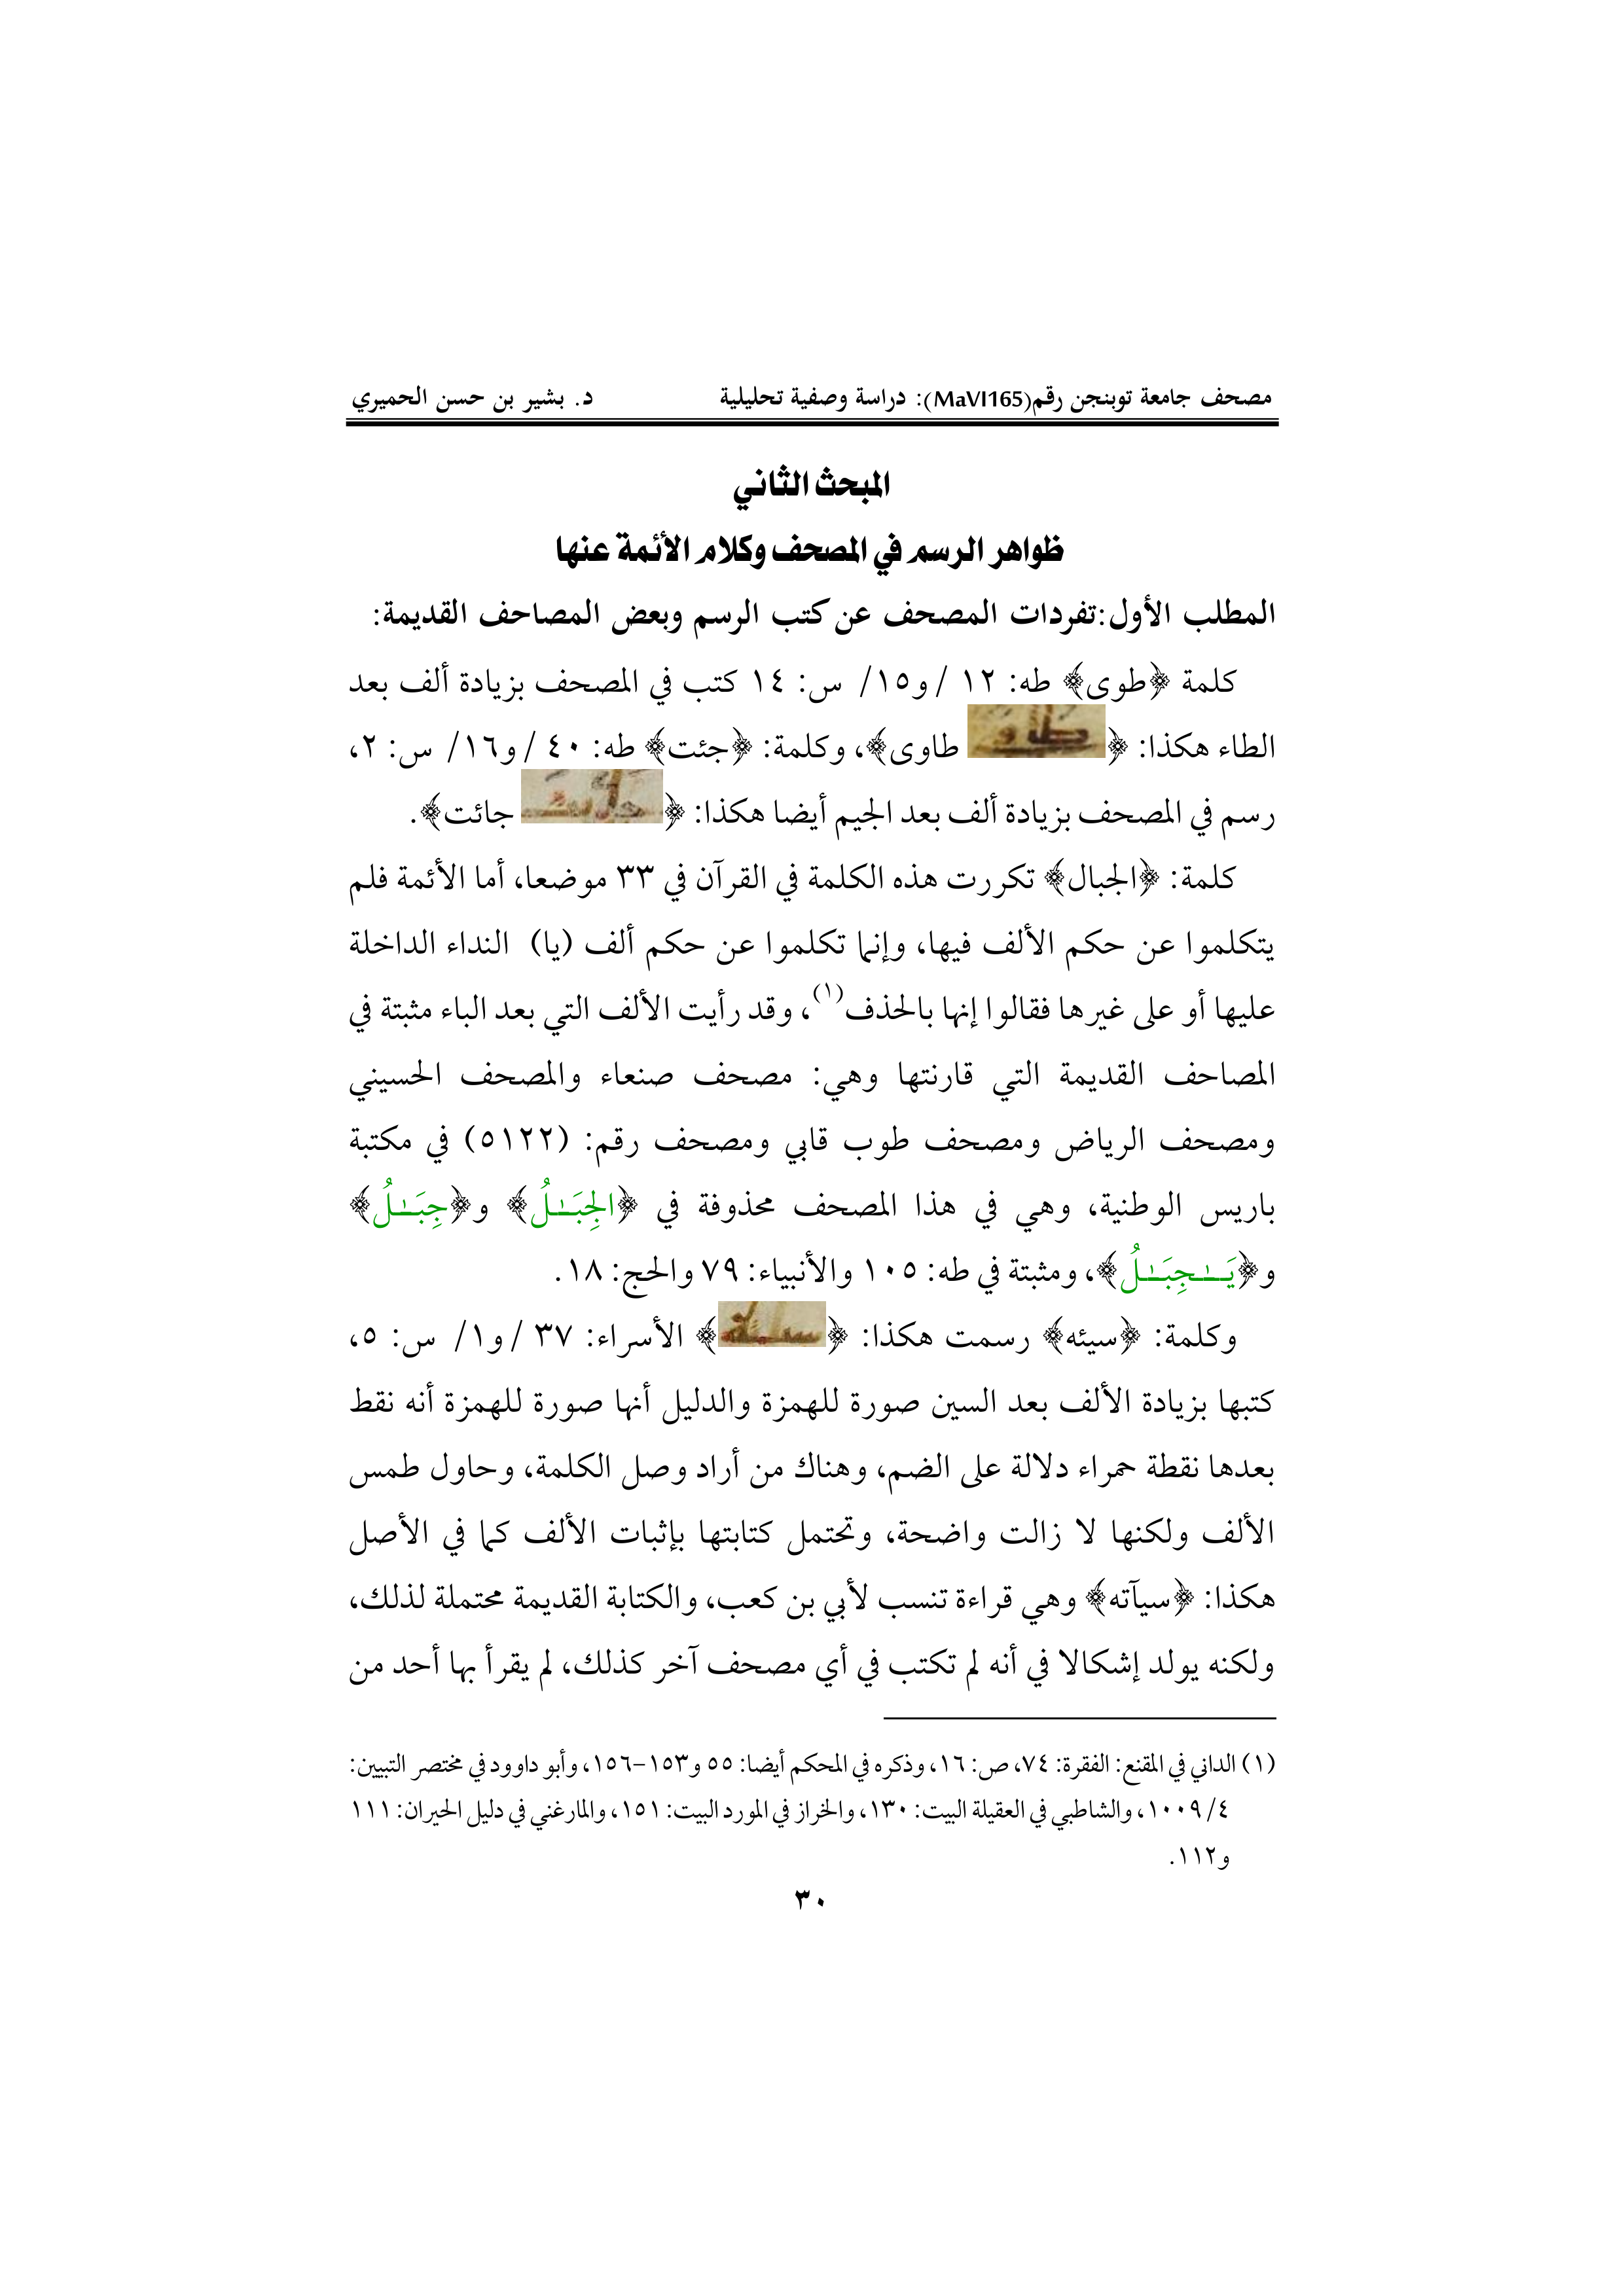 مصحف جامعة توبنجن رقم(MaVI165): دراسة وصفية تحليلية د. بشير بن حسن الحميري
المبحث الثاني
ظواهر الرسم في المصحف وكلام الأئمة عنها
المطلب الأول:تفردات المصحف عن كتب الرسم وبعض المصاحف القديمة:
كلمة ﴿طوى﴾ طه: ١٢ /و١٥/ س: ١٤ كتب في المصحف بزيادة ألف بعد
الطاء هكذا: ﴿ طاوى﴾، وكلمة: ﴿جئت﴾ طه: ٤٠ /و١٦/ س: ٢،
رسم في المصحف بزيادة ألف بعد الجيم أيضا هكذا: ﴿ جائت﴾.
كلمة: ﴿الجبال﴾ تكررت هذه الكلمة في القرآن في ٣٣ موضعا، أما الأئمة فلم
يتكلموا عن حكم الألف فيها، وإنما تكلموا عن حكم ألف (يا) النداء الداخلة
عليها أو على غيرها فقالوا إنها بالحذف(١)، وقد رأيت الألف التي بعد الباء مثبتة في
المصاحف القديمة التي قارنتها وهي: مصحف صنعاء والمصحف الحسيني
ومصحف الرياض ومصحف طوب قابي ومصحف رقم: (٥١٢٢) في مكتبة
باريس الوطنية، وهي في هذا المصحف محذوفة في ﴿الجِبَـٰلُ﴾ و﴿جِبَـٰلُ﴾
و﴿يَـٰجِبَـٰلُ﴾، ومثبتة في طه: ١٠٥ والأنبياء: ٧٩ والحج: ١٨.
وكلمة: ﴿سيئه﴾ رسمت هكذا: ﴿ ﴾ الأسراء: ٣٧ /و١/ س: ٥،
كتبها بزيادة الألف بعد السين صورة للهمزة والدليل أنها صورة للهمزة أنه نقط
بعدها نقطة حمراء دلالة على الضم، وهناك من أراد وصل الكلمة، وحاول طمس
الألف ولكنها لا زالت واضحة، وتحتمل كتابتها بإثبات الألف كما في الأصل
هكذا: ﴿سيآته﴾ وهي قراءة تنسب لأبي بن كعب، والكتابة القديمة محتملة لذلك،
ولكنه يولد إشكالا في أنه لم تكتب في أي مصحف آخر كذلك، لم يقرأ بها أحد من
(١) الداني في المقنع: الفقرة: ٧٤، ص: ١٦، وذكره في المحكم أيضا: ٥٥ و١٥٣-١٥٦، وأبو داوود في مختصر التبيين:
٤/ ١٠٠٩، والشاطبي في العقيلة البيت: ١٣٠، والخراز في المورد البيت: ١٥١، والمارغني في دليل الحيران: ١١١
و١١٢.
٣٠